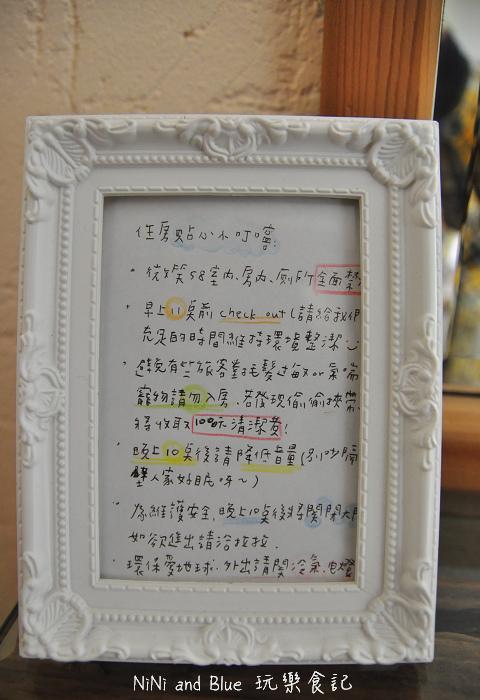 住房貼心小叮嚀:
微笑58室內、房內、廁所全面禁
早上11點前 check out (請給我們
充足的時間維持環境整潔
避免有些旅客對毛髮過敏or氣喘
寵物請勿入房、若發現偷偷挾帶
將收取1000元清潔費!
晚上10點後請降低音量(別吵隔
壁人家好眠呀~)
為維護安全,晚上10點後將關閉大門
如欲進出請洽拉拉.
環保愛地球.外出請關冷氣.電燈
NiNi and Blue 玩樂食記